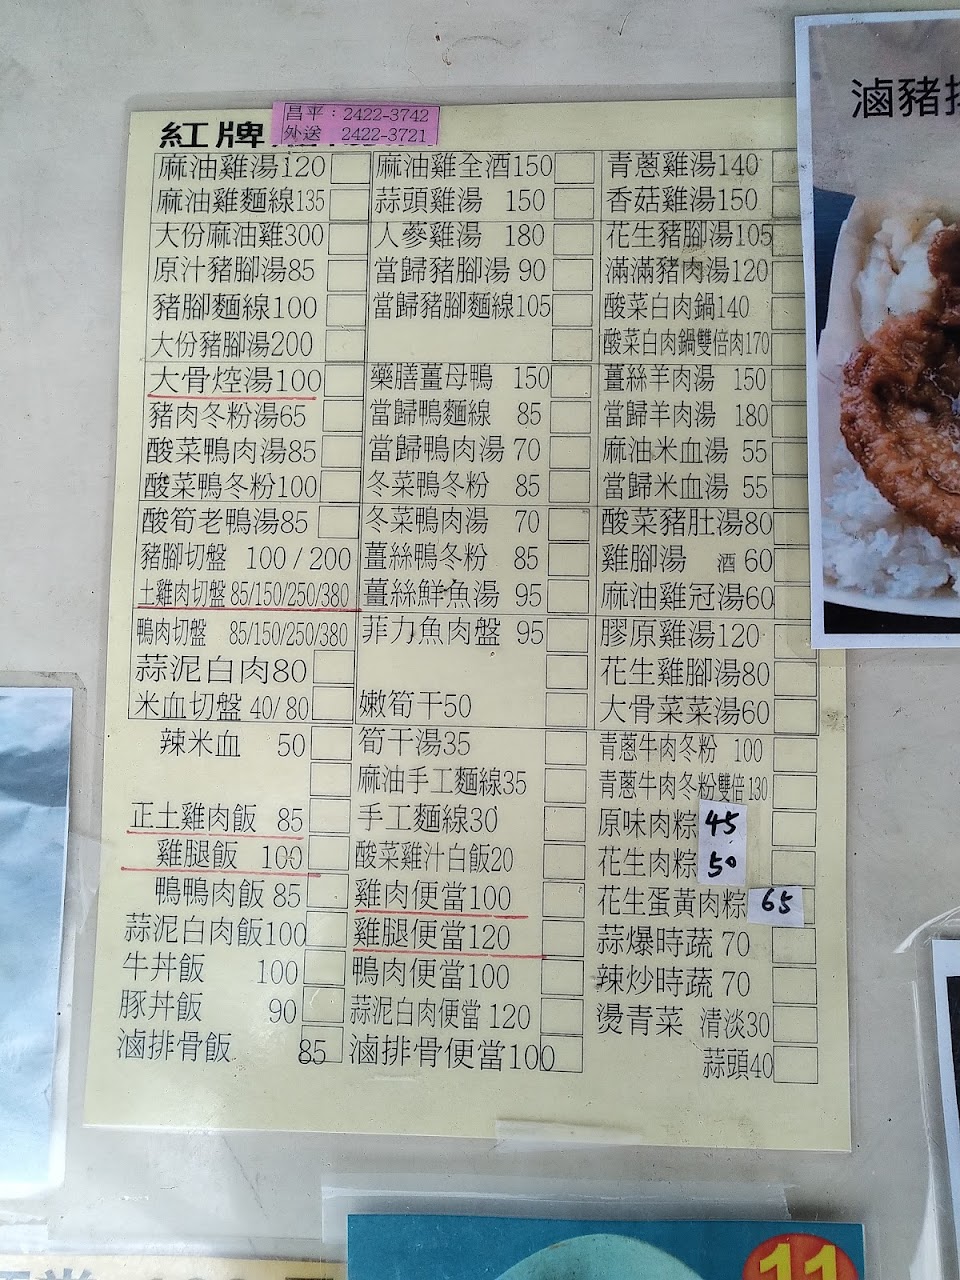 滷豬排
昌平：2422-3742
外送 2422-3721
紅牌
麻油雞湯120
麻油雞麵線135
大份麻油雞300
原汁豬腳湯85
豬腳麵線100
大份豬腳湯200
大骨焢湯100
豬肉冬粉湯65
酸菜鴨肉湯85
酸菜鴨冬粉100
酸筍老鴨湯85
豬腳切盤 100 / 200
土雞肉切盤 85/150/250/380
鴨肉切盤 85/150/250/380
蒜泥白肉80
米血切盤 40/ 80
辣米血 50
正土雞肉飯 85
雞腿飯 100
鴨鴨肉飯 85
蒜泥白肉飯100
牛丼飯 100
豚丼飯 90
滷排骨飯 85
麻油雞全酒150
蒜頭雞湯 150
人蔘雞湯 180
當歸豬腳湯 90
當歸豬腳麵線105
藥膳薑母鴨 150
當歸鴨麵線 85
當歸鴨肉湯 70
冬菜鴨冬粉 85
冬菜鴨肉湯 70
薑絲鴨冬粉 85
薑絲鮮魚湯 95
菲力魚肉盤 95
嫩筍干50
筍干湯35
麻油手工麵線35
手工麵線30
酸菜雞汁白飯20
雞肉便當100
雞腿便當120
鴨肉便當100
蒜泥白肉便當 120
滷排骨便當100
青蔥雞湯140
香菇雞湯150
花生豬腳湯105
滿滿豬肉湯120
酸菜白肉鍋140
酸菜白肉鍋雙倍肉170
薑絲羊肉湯 150
當歸羊肉湯 180
麻油米血湯 55
當歸米血湯 55
酸菜豬肚湯80
雞腳湯 酒 60
麻油雞冠湯60
膠原雞湯120
花生雞腳湯80
大骨菜菜湯60
青蔥牛肉冬粉 100
青蔥牛肉冬粉雙倍130
原味肉粽 45
花生肉粽 50
花生蛋黃肉粽 65
蒜爆時蔬 70
辣炒時蔬 70
燙青菜 清淡30
蒜頭40
11